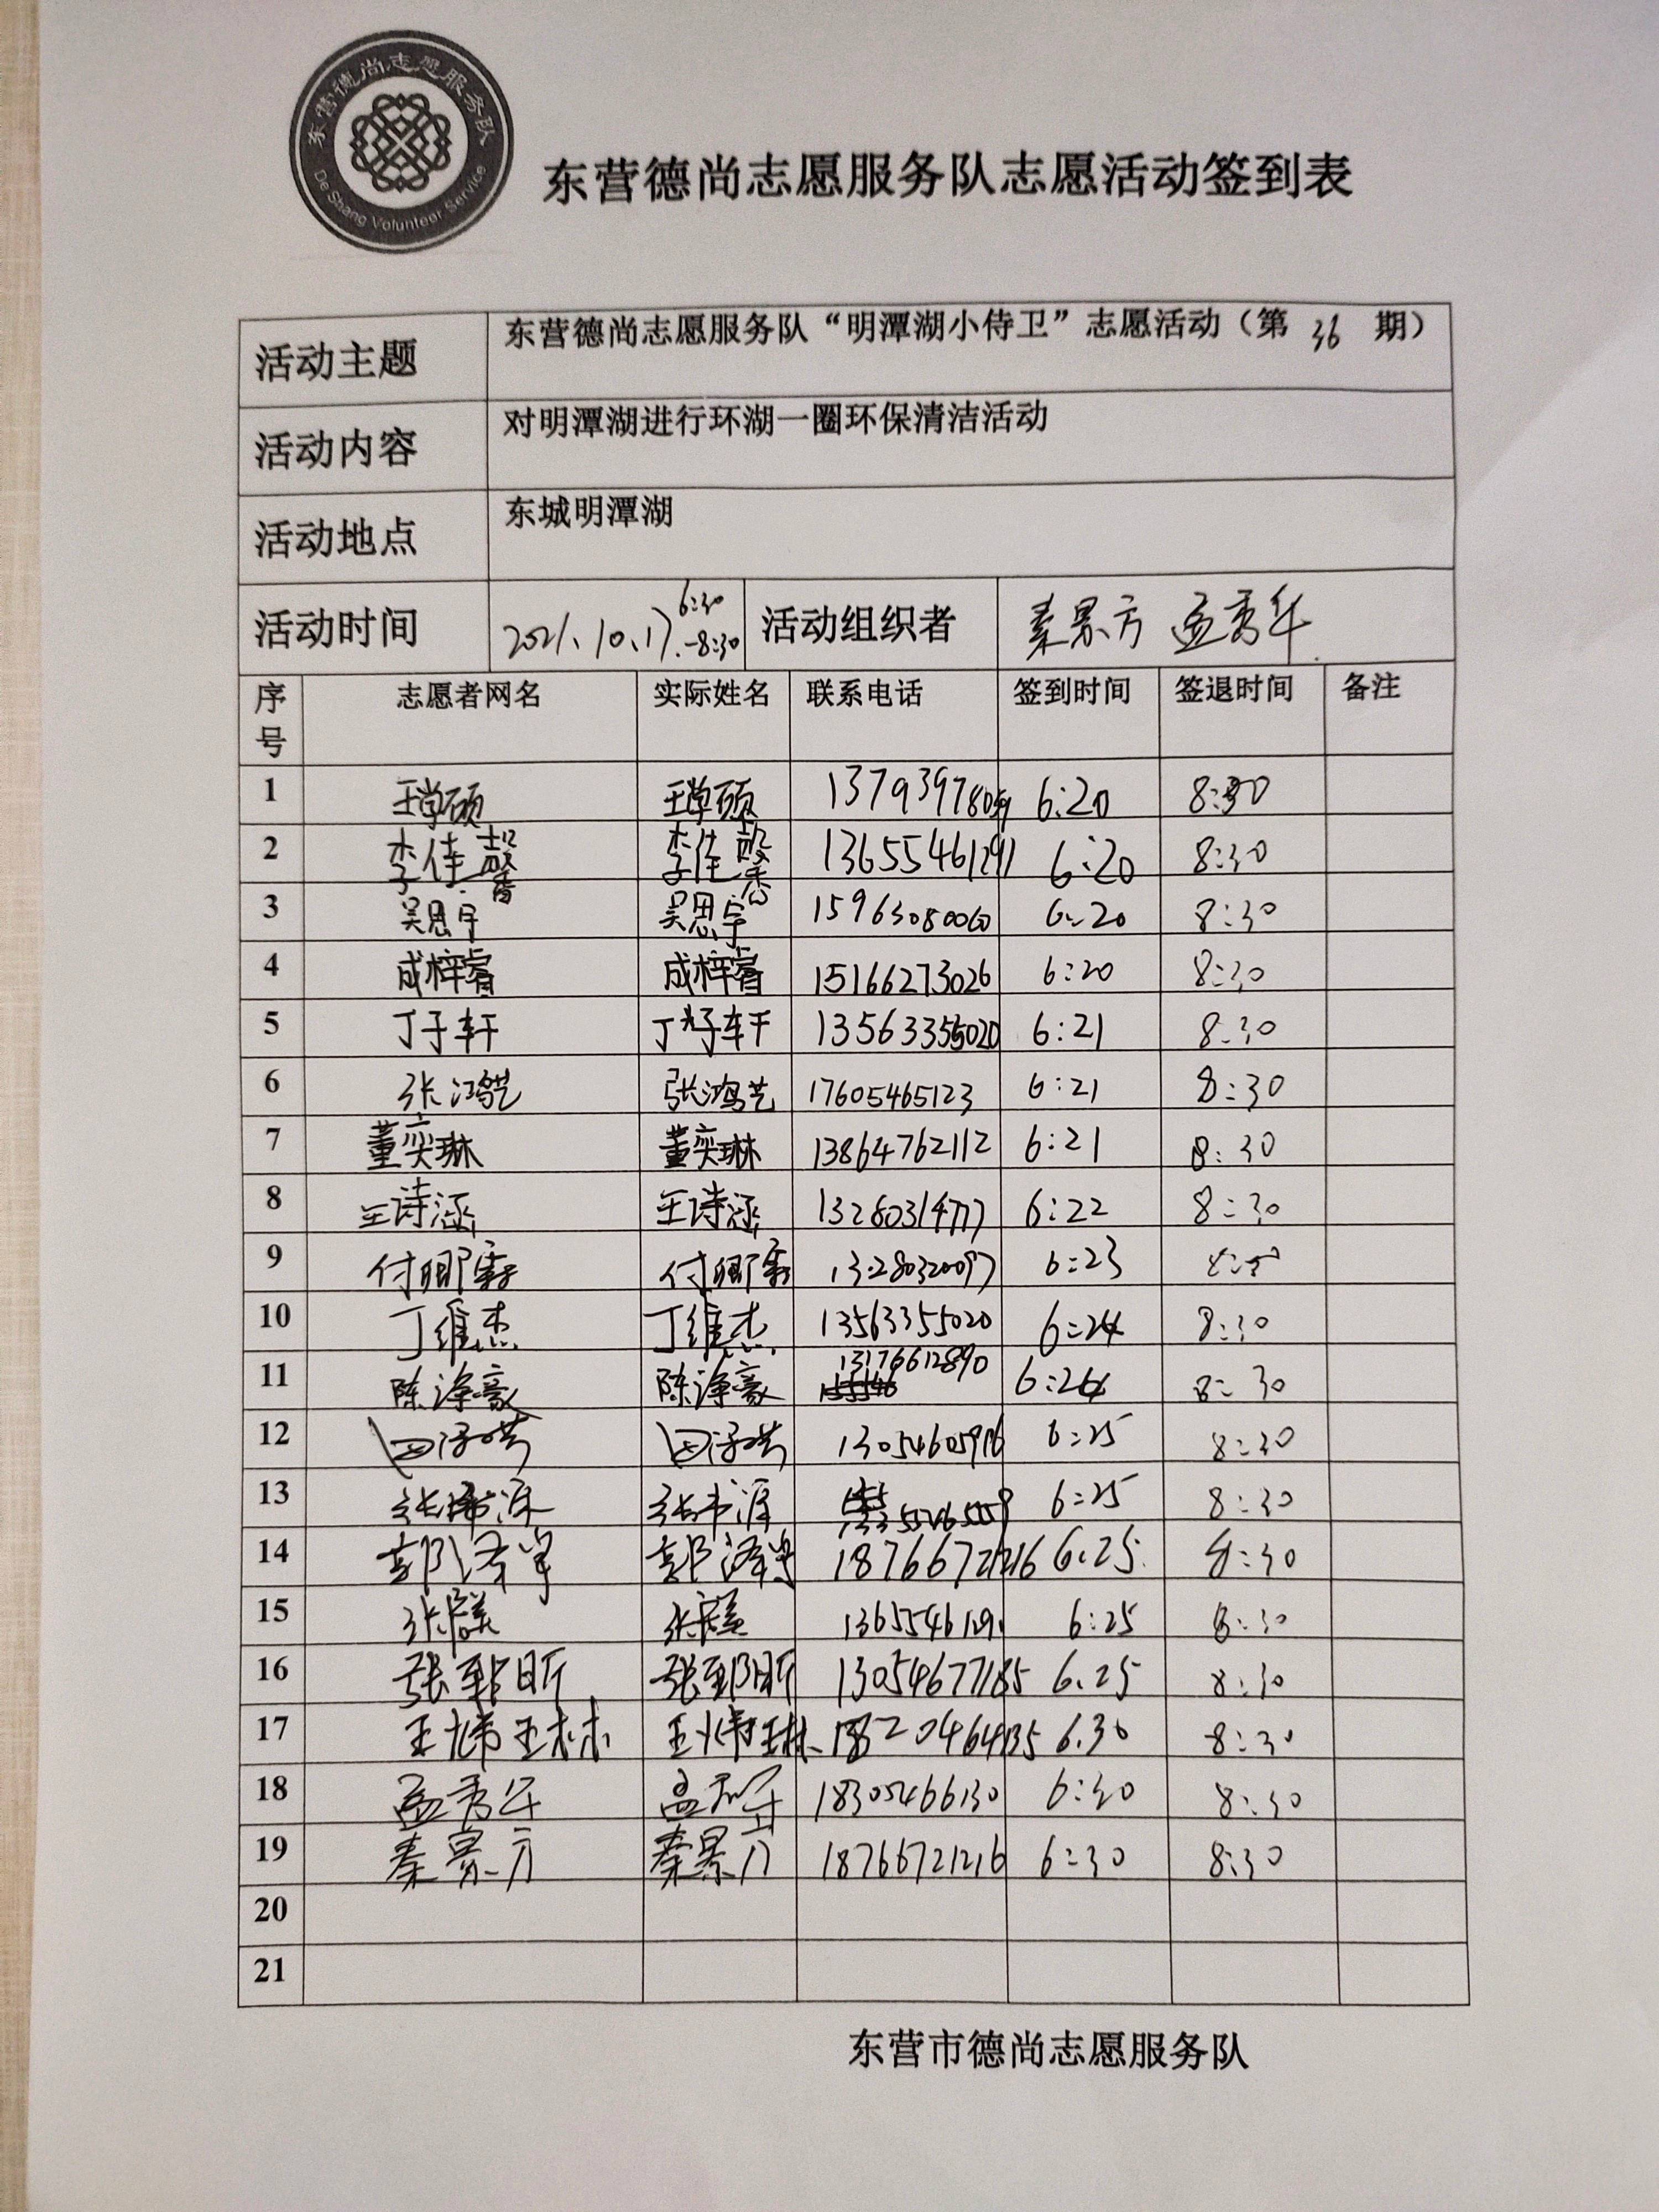 东营德尚志愿服务队
De Shang Volunteer Service
东营德尚志愿服务队志愿活动签到表
活动主题 东营德尚志愿服务队“明潭湖小侍卫”志愿活动（第 36 期）
活动内容 对明潭湖进行环湖一圈环保清洁活动
活动地点 东城明潭湖
活动时间 2021.10.17. 6:30-8:30 活动组织者 秦景方 孟秀华
序号 志愿者网名 实际姓名 联系电话 签到时间 签退时间 备注
1 王学硕 王学硕 6:20 8:30
2 李佳馨 李佳馨 13655461291 6:20 8:30
3 吴思宇 吴思宇 15963080060 6:20 8:30
4 成梓睿 成梓睿 15166273026 6:20 8:30
5 丁子轩 丁子轩 13563355020 6:21 8:30
6 张鸿艺 张鸿艺 17605465123 6:21 8:30
7 董奕琳 董奕琳 13864762112 6:21 8:30
8 王诗涵 王诗涵 6:22 8:30
9 13280320097 6:23
10 丁维杰 丁维杰 13563355020 6:24 8:30
11 陈泽豪 陈泽豪 13176612890 6:24 8:30
12 6:25 8:30
13 6:25 8:30
14 18766721216 6.25 8:30
15 6:25 8:30
16 13054677185 6.25 8:30
17 王炜琳 王炜琳 6.30 8:30
18 孟秀华 孟秀华 18305466130 6:30 8:30
19 秦景方 秦景方 18766721216 6:30 8:30
20
21
东营市德尚志愿服务队